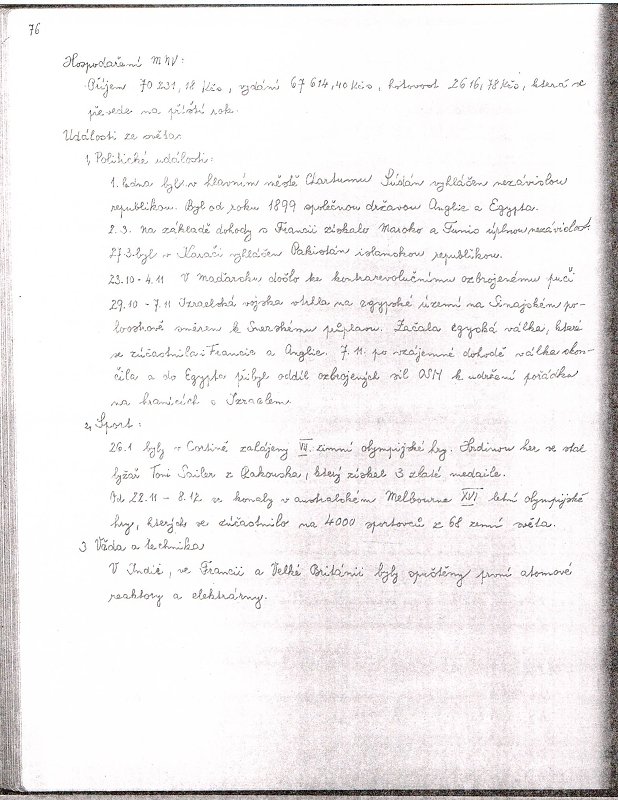 76
Hospodaření MNV:
Příjem 70 231,18 Kčs, vydání 67 614,40 Kčs, hotovost 2616,78 Kčs, která se
převede na příští rok.
Události ze světa:
1, Politické události:
1. ledna byl v hlavním městě Chartumu Súdán vyhlášen nezávislou
republikou. Byl od roku 1899 společnou državou Anglie a Egypta.
2. 3. na základě dohody s Francií získalo Maroko a Tunis úplnou nezávislost.
27.3. byl v Karáči vyhlášen Pakistán islamskou republikou.
23.10 - 4.11 V Maďarsku došlo ke kontrarevolučnímu ozbrojenému puči
29.10 - 7.11 Izraelská vojska vtrhla na egypské území na Sinajském po-
loostrově směrem k Suezskému průplavu. Začala egypská válka, které
se zúčastnila i Francie a Anglie. 7.11. po vzájemné dohodě válka skon-
čila a do Egypta přibyl oddíl ozbrojených sil OSN k udržení pořádku
na hranicích s Izraelem.
2, Sport:
26.1 byly v Cortině zahájeny VII. zimní olympijské hry. Hrdinou her se stal
lyžař Toni Sailer z Rakouska, který získal 3 zlaté medaile.
Od 22.11 - 8.12 se konaly v australském Melbourne XVI letní olympijské
hry, kterých se zúčastnilo na 4000 sportovců z 68 zemí světa.
3 Věda a technika
V Indii, ve Francii a Velké Británii byly spuštěny první atomové
reaktory a elektrárny.